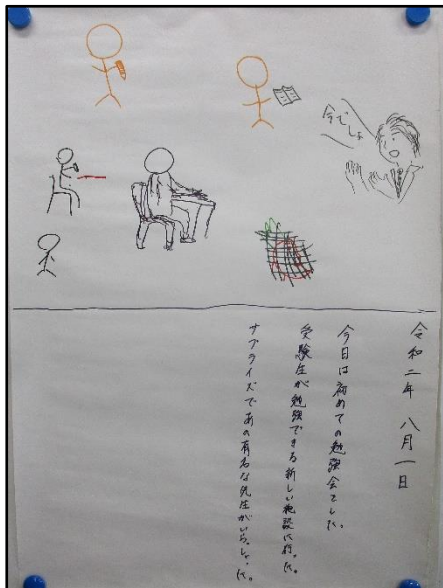 今でしょ
令和二年 八月一日
今日は初めての勉強会でした。
受験生が勉強できる新しい施設に行った。
サプライズであの有名な先生がいらっしゃった。